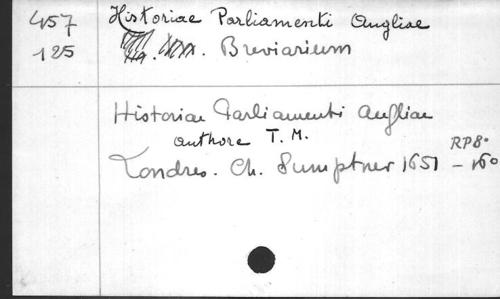 457 Historiae Parliamenti Angliae
125 Breviarium
Historiae Parliamenti Angliae
authore T. M.
Londres. Ch. Sumptner 1651 RP 8°